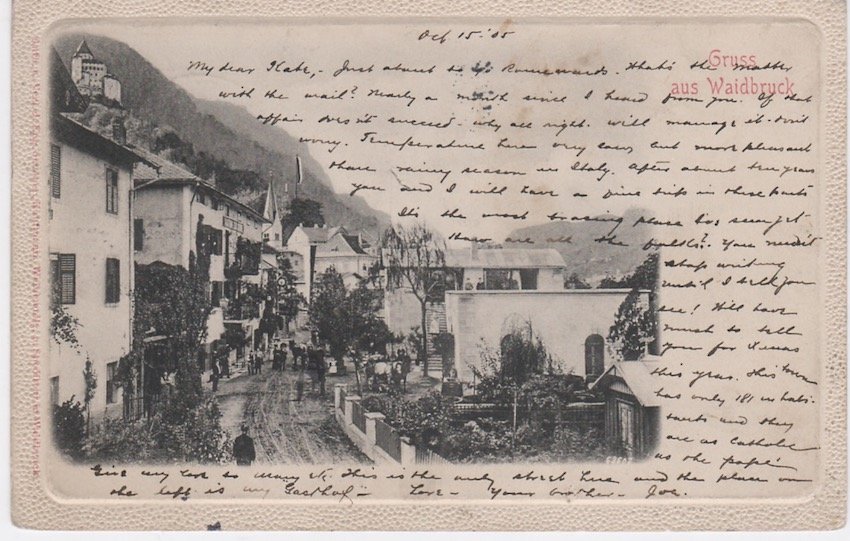 Oct 15 '05
Gruss
aus Waidbruck
My dear Kate,- Just about to go Romewards. What's the matter
with the mail? Nearly a month since I heard from you. If that
affair does'nt succeed - why all right. will manage it. don't
worry. Temperature here very low, but more pleasant
than rainy season in Italy. After about ten years
you and I will have a fine trip in these parts
It's the most bracing place I've seen yet.
How are all the folks? You needn't
stop writing
until I tell you
so! Will have
much to tell
you for Xmas
this year. This town
has only 181 inhabi-
tants and they
are as Catholic
as the pope.
Give my love to Mary etc. This is the only street here and the place on
the left is my Gasthof - Love - Your brother - Joe.